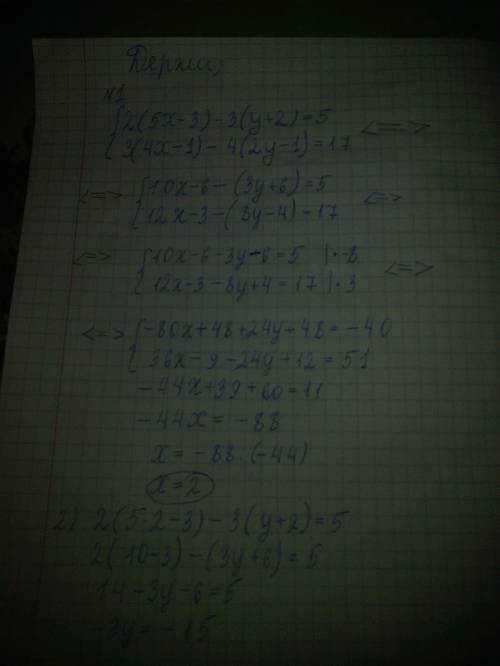 Держи,
№1
{2(5x-3)-3(y+2)=5
{3(4x-1)-4(2y-1)=17 <=>
<=> {10x-6-(3y+6)=5
{12x-3-(8y-4)=17 <=>
<=> {10x-6-3y-6=5 |·-8
{12x-3-8y+4=17 |·3 <=>
<=> {-80x+48+24y+48=-40
{36x-9-24y+12=51
-44x+39+60=11
-44x=-88
x=-88:(-44)
x=2
2) 2(5·2-3)-3(y+2)=5
2(10-3)-(3y+6)=5
14-3y-6=5
-3y=-15